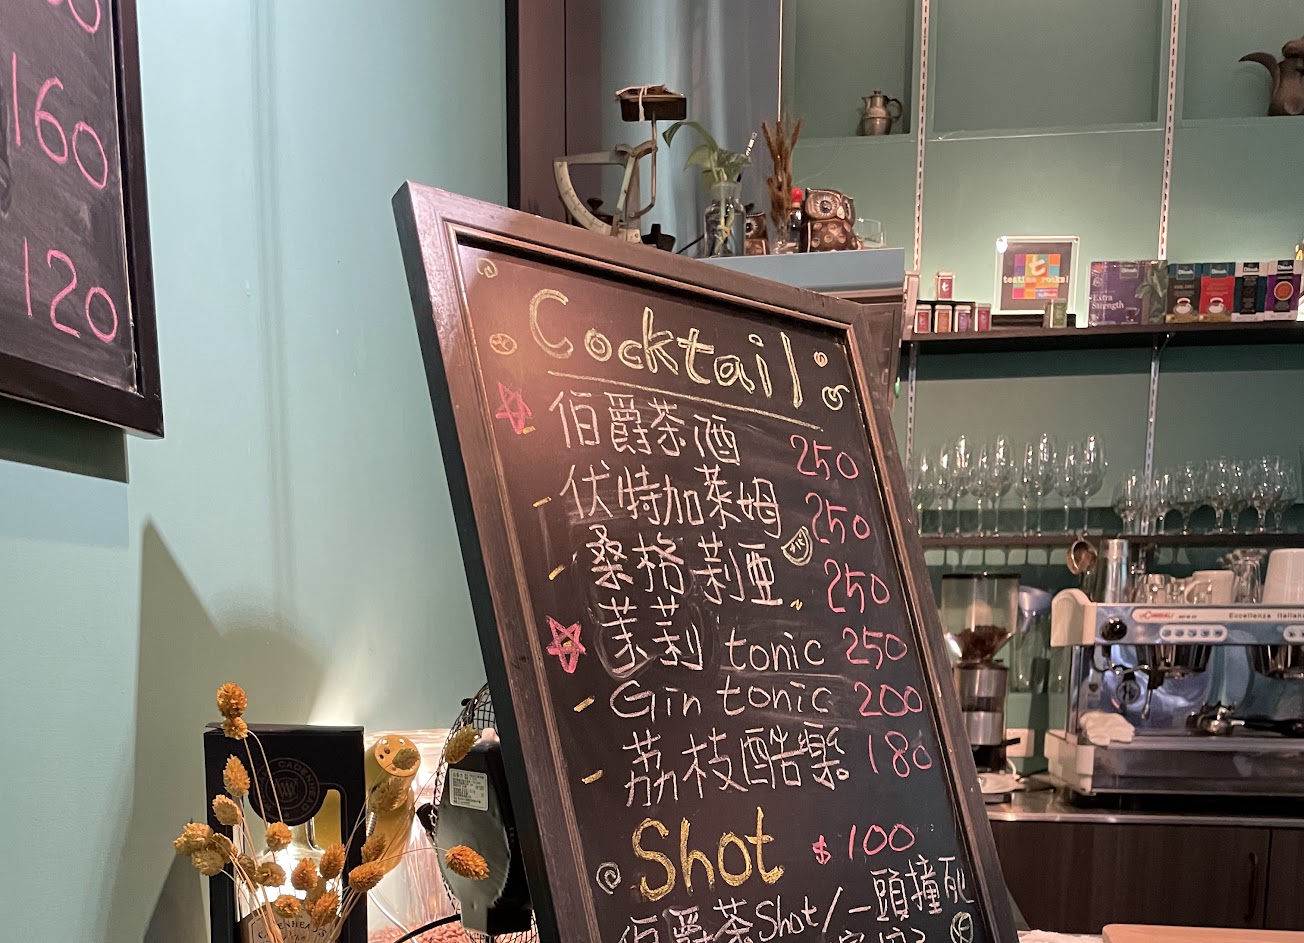 160
120
Cocktail
伯爵茶酒 250
伏特加萊姆 250
桑格莉亞 250
茉莉 tonic 250
Gin tonic 200
荔枝酷樂 180
Shot $100
伯爵茶Shot/一頭撞死
teatime rocks!
Extra
Strength
Dilmah
Dilmah
CADENHEAD
Eccellenza italiana